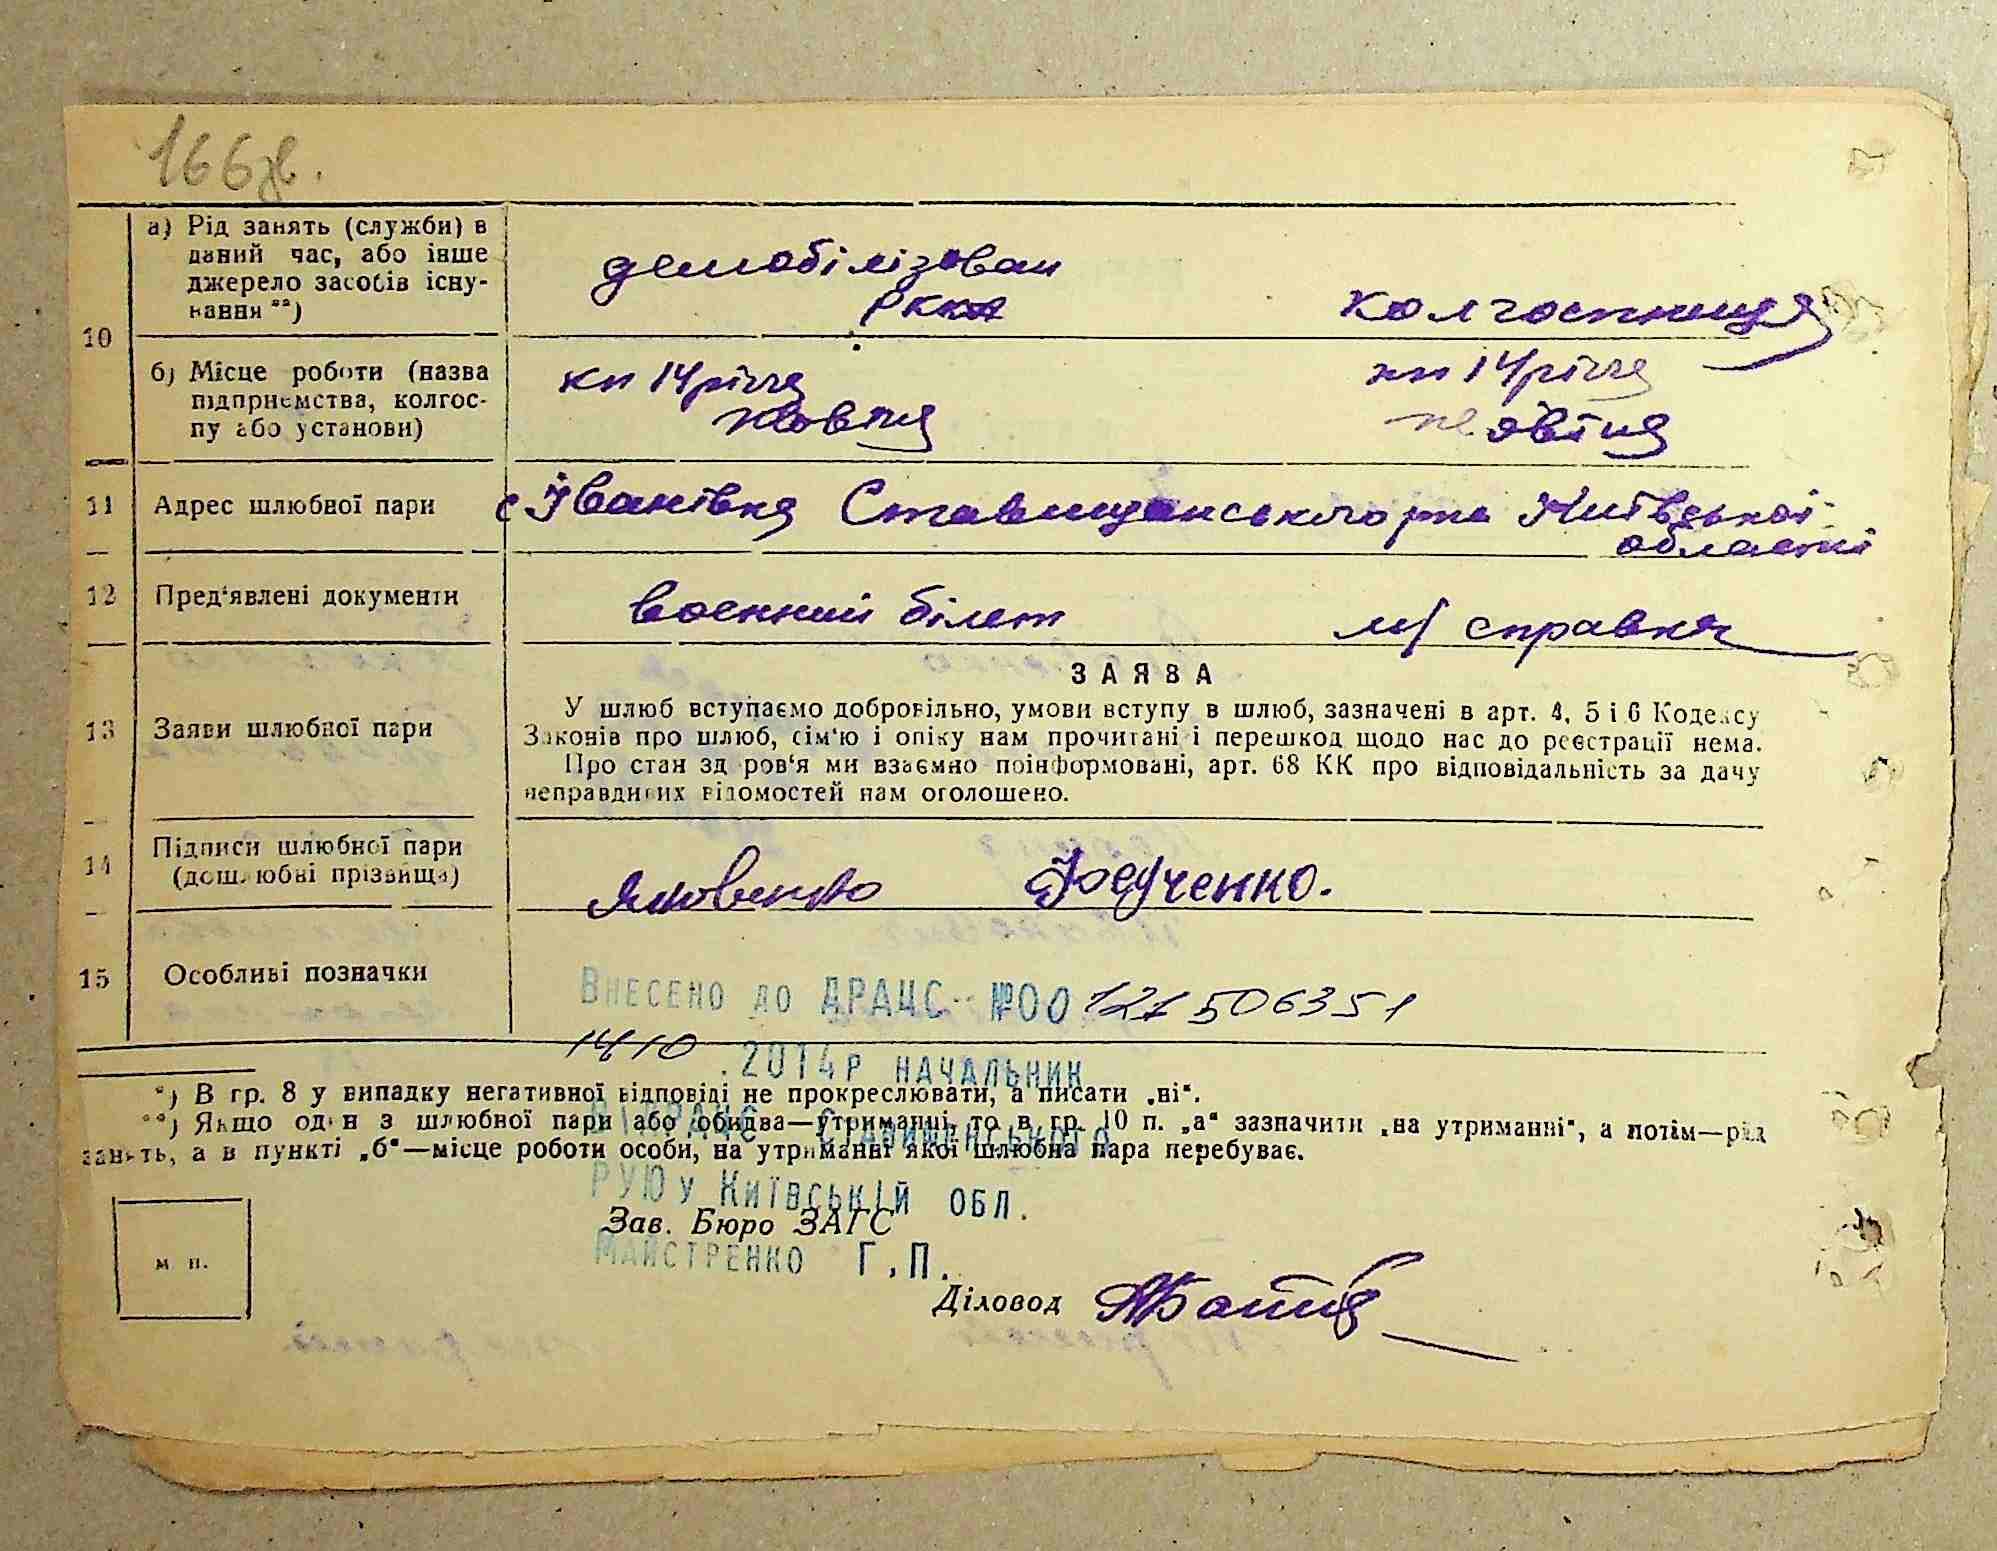 166зв.
а) Рід занять (служби) в
даний час, або інше
джерело засобів існу-
вання **)
демобілізован
РККА
колгоспниця
10
б) Місце роботи (назва
підприємства, колгос-
пу або установи)
кп 14 річчя
жовтня
кп 14 річчя
жовтня
11 Адрес шлюбної пари
с Іванівка Ставищанського р-на Київської
області
12 Пред'явлені документи
воєнний білет
м/ справка
ЗАЯВА
13 Заяви шлюбної пари
У шлюб вступаємо добровільно, умови вступу в шлюб, зазначені в арт. 4, 5 і 6 Кодексу
Законів про шлюб, сім'ю і опіку нам прочитані і перешкод щодо нас до реєстрації нема.
Про стан здоров'я ми взаємно поінформовані, арт. 68 КК про відповідальність за дачу
неправдивих відомостей нам оголошено.
14 Підписи шлюбної пари
(дошлюбні прізвища)
Яковенко
Федченко.
15 Особливі позначки
Внесено до ДРАЦС №00 121506351
14 10 .2014р начальник
*) В гр. 8 у випадку негативної відповіді не прокреслювати, а писати „ні“.
ВДРАЦС Ставищенського
**) Якщо один з шлюбної пари або обидва—утриманні, то в гр. 10 п. „а“ зазначити „на утриманні“, а потім—рід
занять, а в пункті „б“—місце роботи особи, на утриманні якої шлюбна пара перебуває.
РУЮ у Київській обл.
Зав. Бюро ЗАГС
Майстренко Г.П.
м п.
Діловод